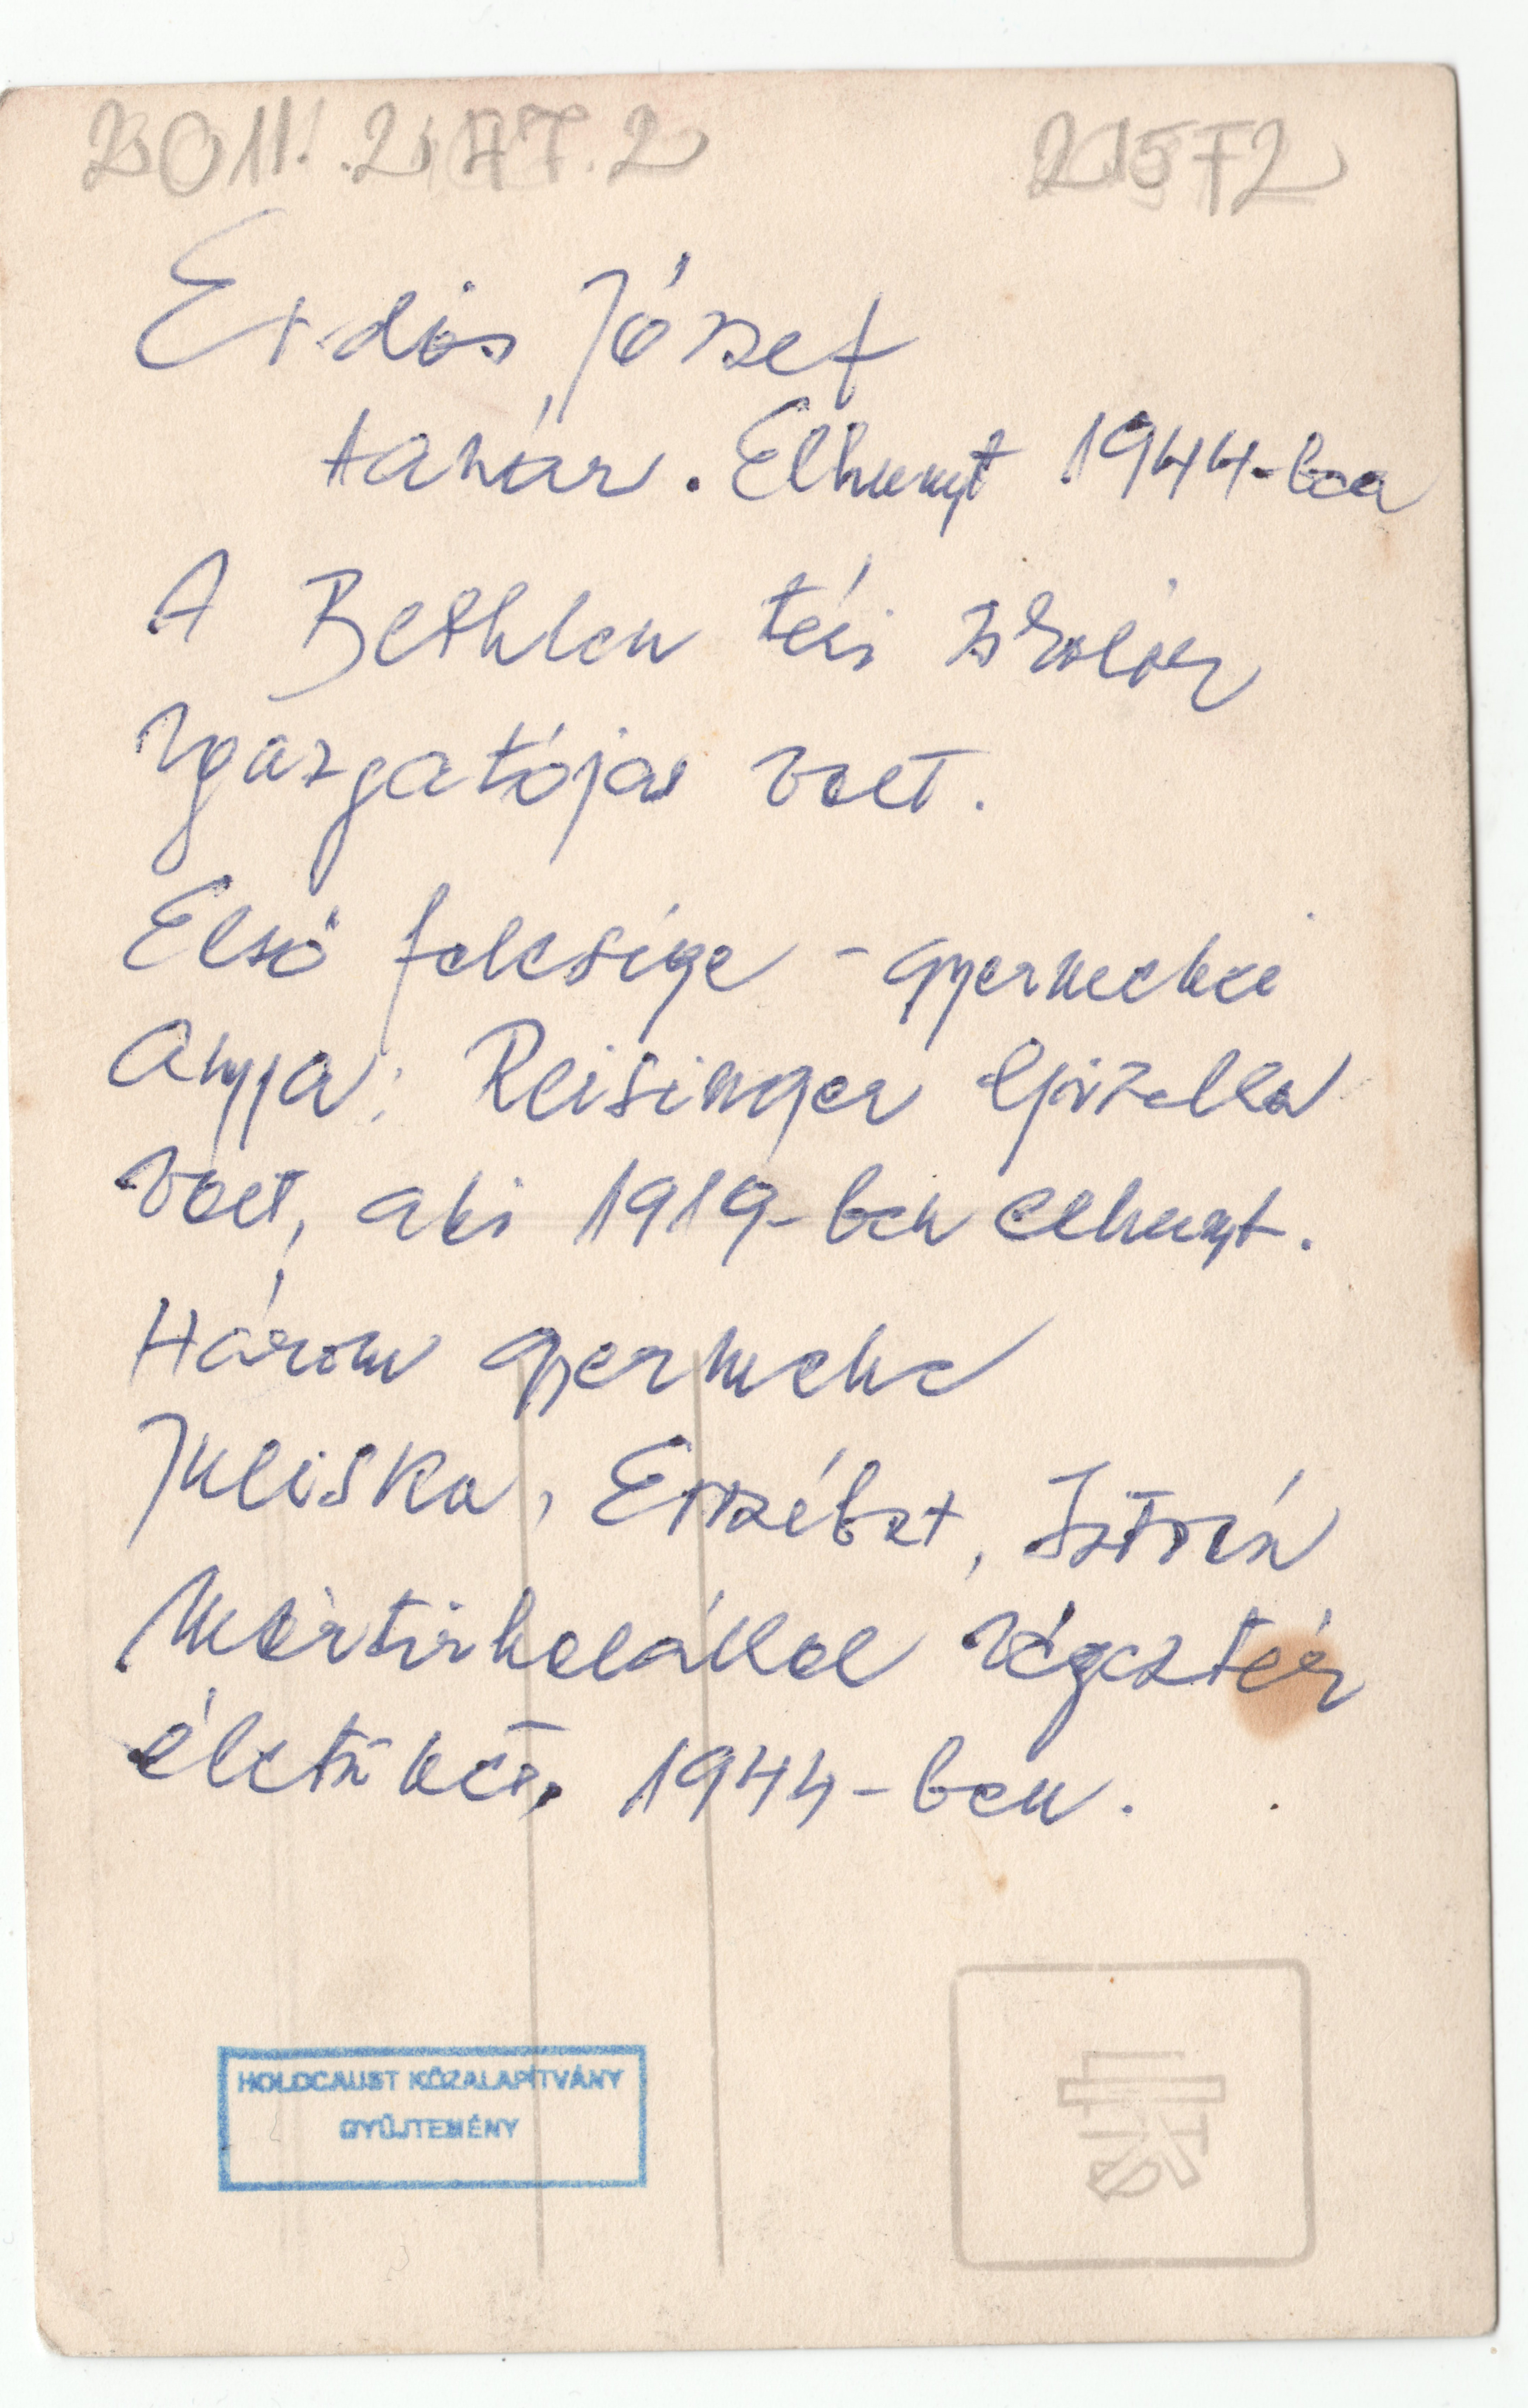 2011.247.2 21572
Erdős József
tanár. Elhunyt 1944-ben
A Bethlen téri iskola
igazgatója volt.
Első felesége - gyermekei
anyja: Reisinger Gizella
volt, aki 1919-ben elhunyt.
Három gyermeke
Juliska, Erzsébet, István
mártirhalállal végezték
életüket, 1944-ben.
HOLOCAUST KÖZALAPÍTVÁNY
GYŰJTEMÉNY